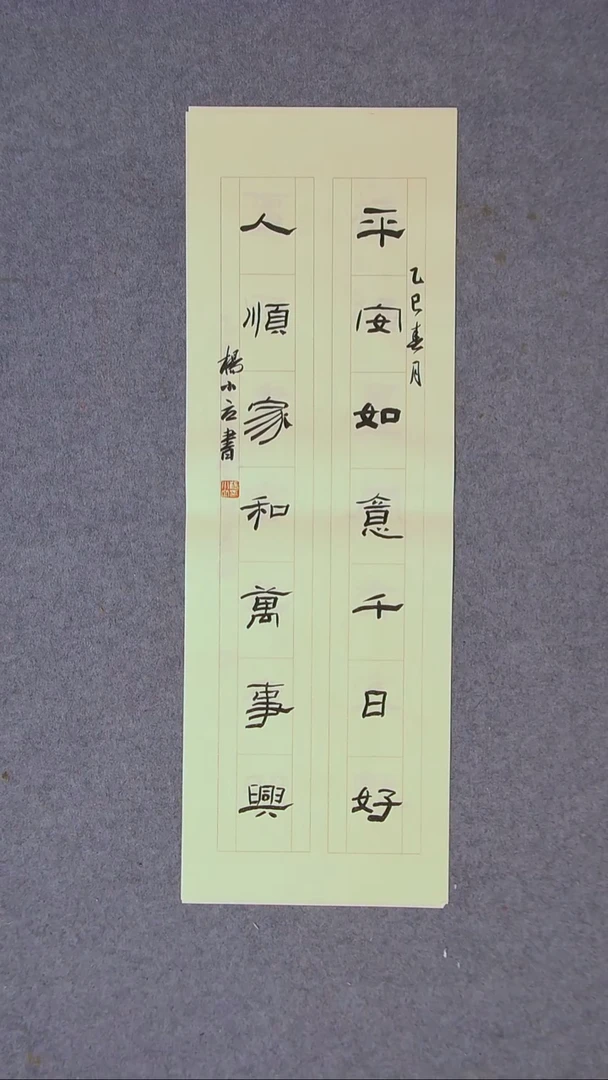 平安如意千日好
乙巳春月
人順家和萬事興
楊小立書